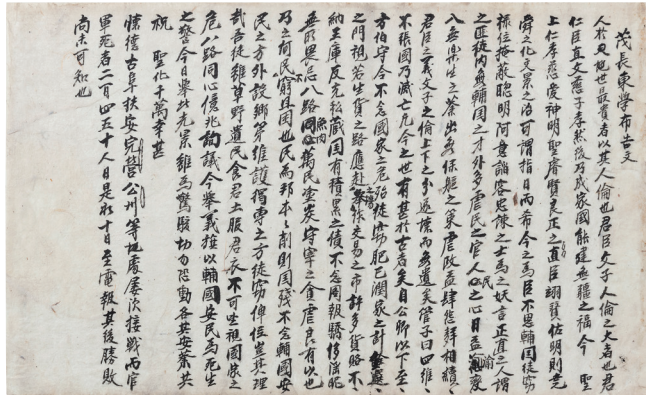 茂長東學布告文
人於世最貴者以其人倫也君臣父子人倫之大者也君
仁臣直父慈子孝然後乃成家國能逮無疆之福今 聖
上仁孝慈愛神明聖睿賢良正之直臣翊贊佐明則堯
舜之化文景之治可謂指日而希今之爲臣不思輔国徒窃
祿位掩蔽聰明阿意諂容忠諫之士爲之妖言正直之人謂
之匪徒內無輔国之才外多虐民之官人民之心日益渝變
入無樂生之業出無保軀之策虐政益肆怨聲相續ゝ
君臣之義父子之倫上下之分遂壞而無遺矣管子曰四維ゝ
不張國乃滅亡凡今之世有甚於古者矣自公卿以下至ゝ
方伯守令不念國家之危殆徒窃肥己潤家之計銓選ゝ
之門視若生貨之路應赴之場交易之市許多貨賂不ゝ
納王庫反充私藏国有積累之債不念圖報驕侈淫昵
無所畏忌八路魚肉萬民塗炭守宰之貪虐良有以也
乃之何民不窮且困也民爲邦本ゝ削則国殘不念輔国安
民之方外設鄕第維護獨専之方徒窃俸位豈其理
哉吾徒雖草野遺民食君土服君衣不可坐視國家之
危八路同心億兆詢議今擧義推以輔國安民爲死生
之誓今日擧此光景雖爲驚駭切勿恐動各其安業共
祝 聖化千萬幸甚
懷德古阜扶安完營公州等地處屢次接戰而官
軍死者二百四五十人日是初十日至電報其後勝敗
尙未可知也